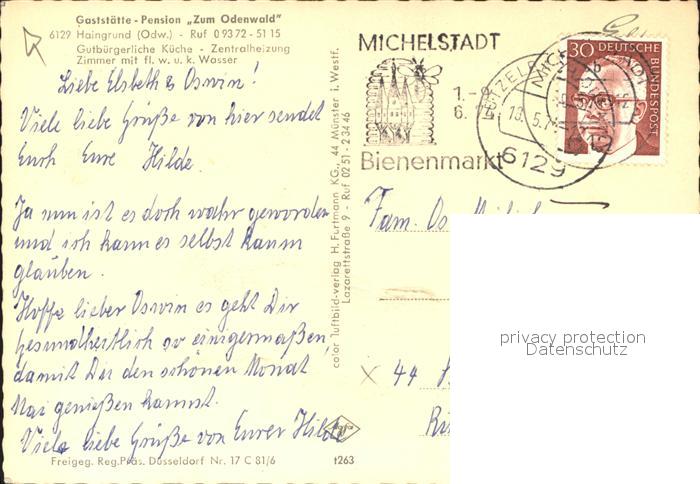 Gaststätte - Pension „Zum Odenwald"
6129 Haingrund (Odw.) - Ruf 0 93 72 - 51 15
Gutbürgerliche Küche - Zentralheizung
Zimmer mit fl. w. u. k. Wasser
Liebe Elsbeth & Oswin!
Viele liebe Grüße von hier sendet
Euch Eure Hilde.
Ja nun ist es doch wahr geworden
und ich kann es selbst kaum
glauben.
Hoffe lieber Oswin es geht Dir
gesundheitlich so einigermaßen,
damit Du den schönen Monat
Mai genießen kannst.
Viele liebe Grüße von Eurer Hilde
Freigeg. Reg. Präs. Düsseldorf Nr. 17 C 81/6
t263
color luftbild-verlag H. Furtmann KG., 44 Münster i. Westf.
Lazarettstraße 9 - Ruf 02 51 - 2 34 46
MICHELSTADT
Bienenmarkt
6129
30 DEUTSCHE
BUNDESPOST
Fam.
44
privacy protection
Datenschutz